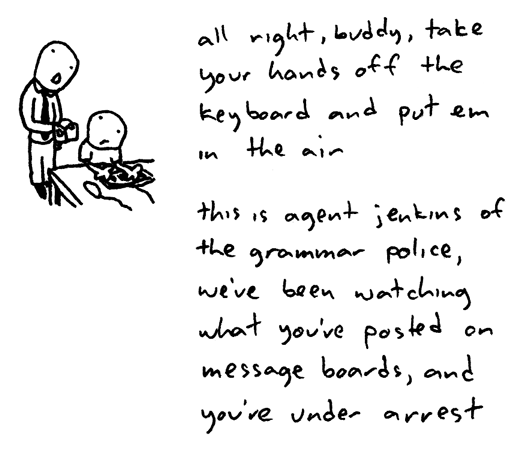 all right, buddy, take
your hands off the
keyboard and put em
in the air
this is agent jenkins of
the grammar police,
we've been watching
what you've posted on
message boards, and
you're under arrest